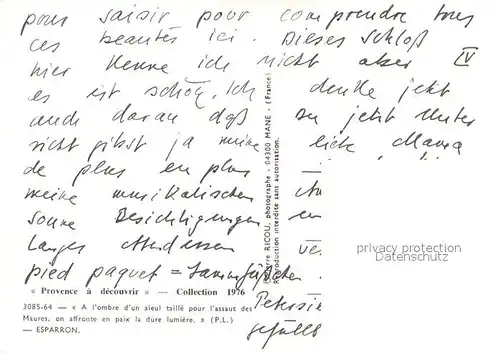 pour saisir pour comprendre tous
ces beautés ici. Dieses Schloß
hier kenne ich nicht aber IV
es ist schön. Ich denke jetzt
auch daran daß du jetzt Unter
richt gibst ja meine liebe Mama
de plus en plus
meine musikalischen
Besichtigungen
langes
pied paquet =
Petersi
gefüllt
« Provence à découvrir » — Collection 1976
3085-64 — « A l'ombre d'un aïeul taillé pour l'assaut des
Maures, on affronte en paix la dure lumière. » (P.L.)
— ESPARRON.
Pierre RICOU, photographe - 04300 MANE - (France)
Reproduction interdite sans autorisation.
privacy protection
Datenschutz